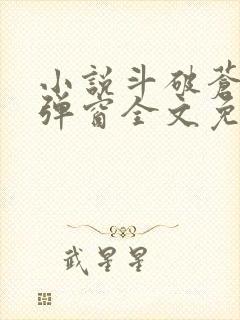 小說斗破蒼
彈窗全文免
武星星